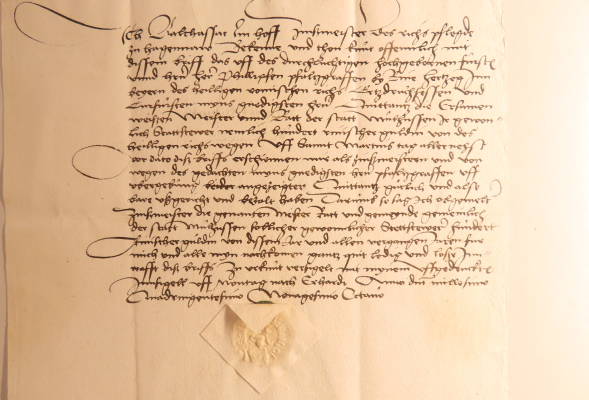 Ich Balthassar Im Hoff Zinsmeister des richs pflege
zu hagennaw Bekenne und thon kunt offenlich mit
dissem brieff das uff des durchluchtigen hochgebornen fursten
und hern her Philipsen pfaltzgraffen by Rine hertzog Inn
beyern des heilligen romischen richs Ertzdruchsessen und
Curfursten myns gnedigsten hern Quittantz die Ersamen
wisen Meister und Ratt der statt Mulhussen Ir gewon
lich Stattstewer nemlich hundert rinischer guldin von des
heilligen richs wegen uff Sannt Martins tag aller nehst
vor dato diss brieffs erschinnen mir als zinsmeistern und von
wegen des gedachten myns gnedigsten hern pfaltzgraffen uff
ubergebung beider angezeigter Quittantz gutlich und also
bare ußgericht und bezalt haben Harumb so sag Ich obgemelt
Zinsmeister die genanten Meister Ratt und gemeynde gemeinlich
der statt Mulhussen sollicher gewonlicher Stattstewer hundert
rinischer guldin von dissem Jar und allen vergangen Jaren fur
mich und alle myn nachkomen gantz quit ledig und loße Inn
crafft diß brieffs In urkunt versigelt mit mynem uffgedruckten
Innsigell uff Montag nach Erhardi Anno dni millesimo
Quadringentesimo Nonagesimo Octavo